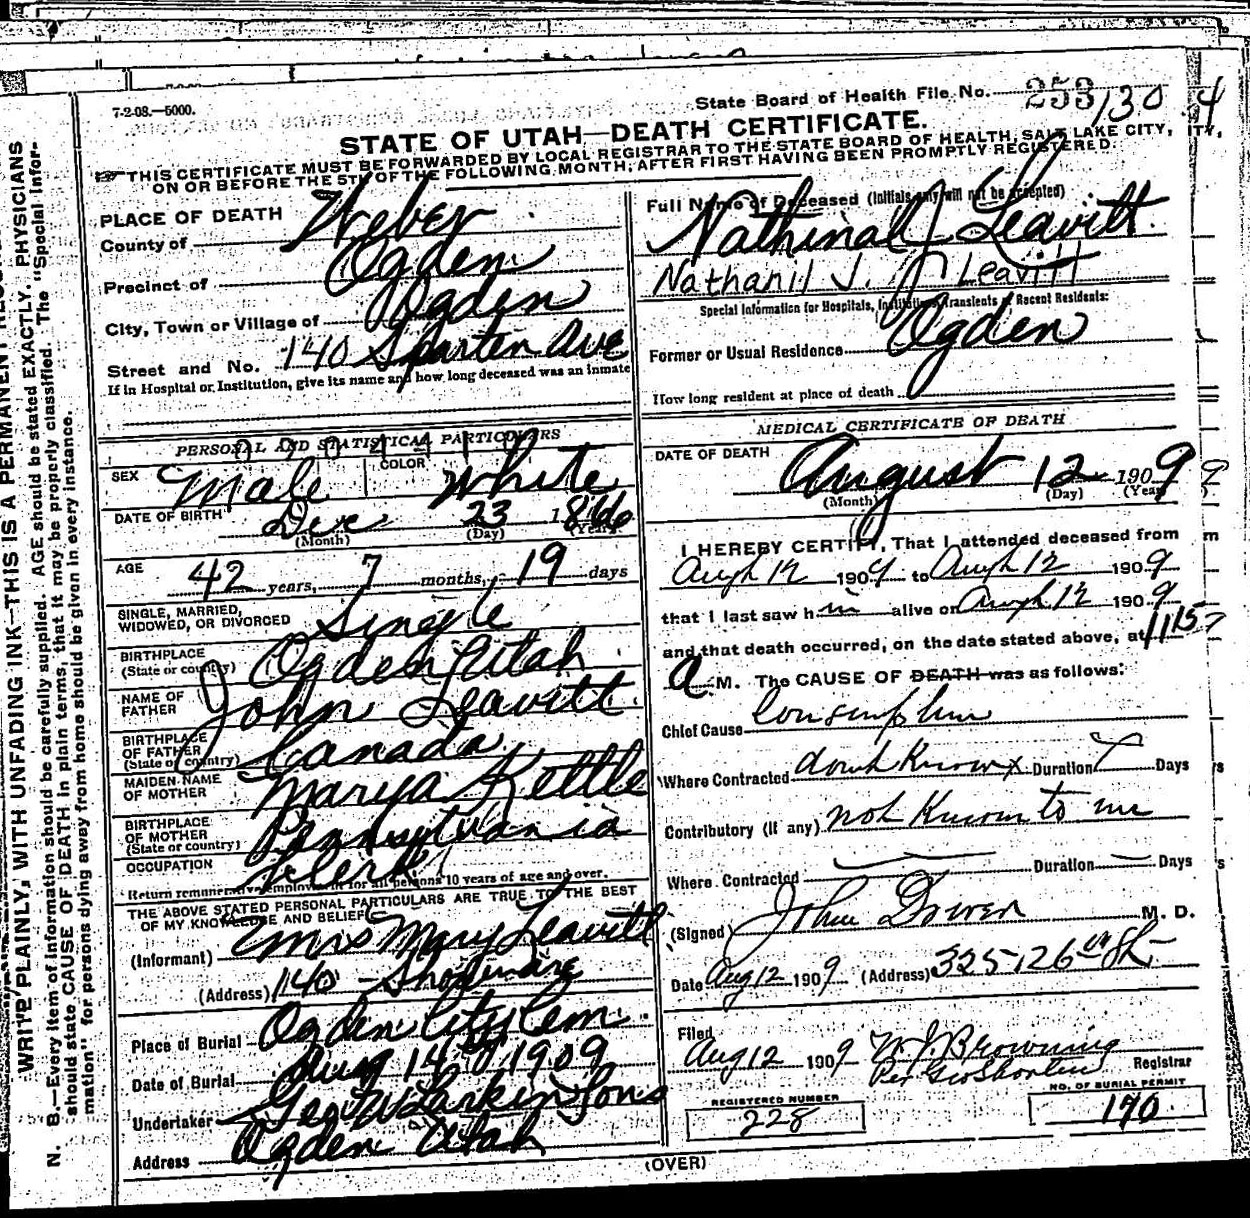 7-2-08.—5000.
State Board of Health File No. 253 130 4
STATE OF UTAH—DEATH CERTIFICATE.
THIS CERTIFICATE MUST BE FORWARDED BY LOCAL REGISTRAR TO THE STATE BOARD OF HEALTH, SALT LAKE CITY,
ON OR BEFORE THE 5TH OF THE FOLLOWING MONTH, AFTER FIRST HAVING BEEN PROMPTLY REGISTERED.
PLACE OF DEATH
County of Weber
Precinct of Ogden
City, Town or Village of Ogden
Street and No. 140 Ave
If in Hospital or Institution, give its name and how long deceased was an inmate
PERSONAL AND STATISTICAL PARTICULARS
SEX Male COLOR White
DATE OF BIRTH Dec 23 1866
(Month) (Day) (Year)
AGE 42 years, 7 months, 19 days
SINGLE, MARRIED,
WIDOWED, OR DIVORCED Single
BIRTHPLACE
(State or country) Ogden Utah
NAME OF
FATHER John Leavitt
BIRTHPLACE
OF FATHER
(State or country) Canada
MAIDEN NAME
OF MOTHER Marya Kettle
BIRTHPLACE
OF MOTHER
(State or country) Pennsylvania
OCCUPATION Clerk
Return remunerative employment for all persons 10 years of age and over.
THE ABOVE STATED PERSONAL PARTICULARS ARE TRUE TO THE BEST
OF MY KNOWLEDGE AND BELIEF
(Informant) Mrs Mary Leavitt
(Address) 140
Place of Burial Ogden City Cem.
Date of Burial Aug 14 1909
Undertaker Geo W Larkin Sons
Address Ogden Utah
Full Name of Deceased (Initials only will not be accepted)
Nathinal J Leavitt.
Nathanil J. Leavitt
Special Information for Hospitals, Institutions, Transients or Recent Residents:
Former or Usual Residence Ogden
How long resident at place of death
MEDICAL CERTIFICATE OF DEATH
DATE OF DEATH August 12 1909
(Month) (Day) (Year)
I HEREBY CERTIFY, That I attended deceased from
Augh 12 1909 to Augh 12 1909
that I last saw him alive on Augh 12 1909
and that death occurred, on the date stated above, at 1115
a M. The CAUSE OF DEATH was as follows:
Chief Cause
Where Contracted Duration Days
Contributory (if any) not Known to me
Where Contracted Duration Days
(Signed) John Dower M. D.
Date Aug 12 1909 (Address) 325-26th St
Filed
Aug 12 1909 W J. Browning
Registrar
REGISTERED NUMBER
228
NO. OF BURIAL PERMIT
170
(OVER)
WRITE PLAINLY, WITH UNFADING INK—THIS IS A PERMANENT
N. B.—Every item of information should be carefully supplied. AGE should be stated EXACTLY. PHYSICIANS
should state CAUSE OF DEATH in plain terms, that it may be properly classified. The "Special Infor-
mation" for persons dying away from home should be given in every instance.